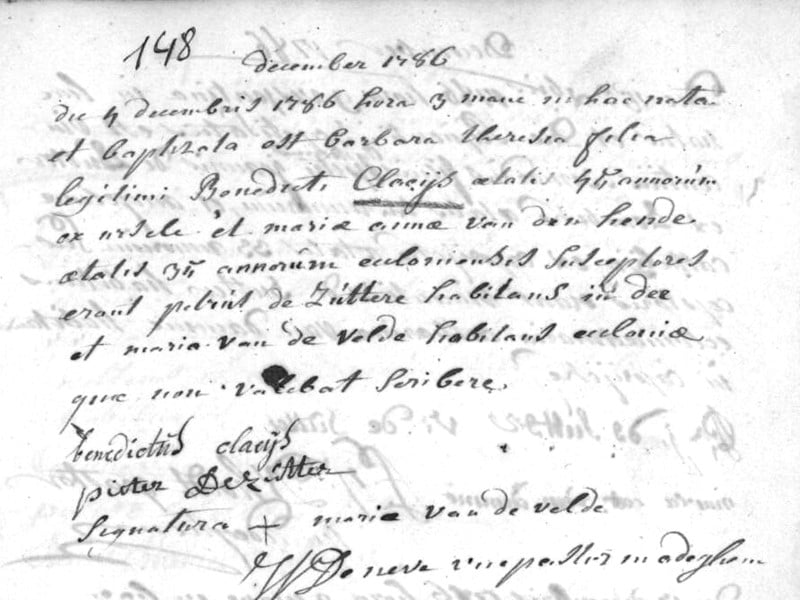 148
december 1786
die 4 decembris 1786 hora 3 mane in hac nata
et baptizata est barbara theresia filia
legitimi Benedicti Claeijs ætatis annorum
ex ursele et mariæ annæ van den hende
ætatis annorum ecloniensis susceptores
erant petrus de Zuttere habitans in dee
et maria van de velde habitans eecloniæ
quæ non valebat scribere
benedictus claeijs
pieter De Zutter
Signatura + marie van de velde
De neve vicepastor in adeghem